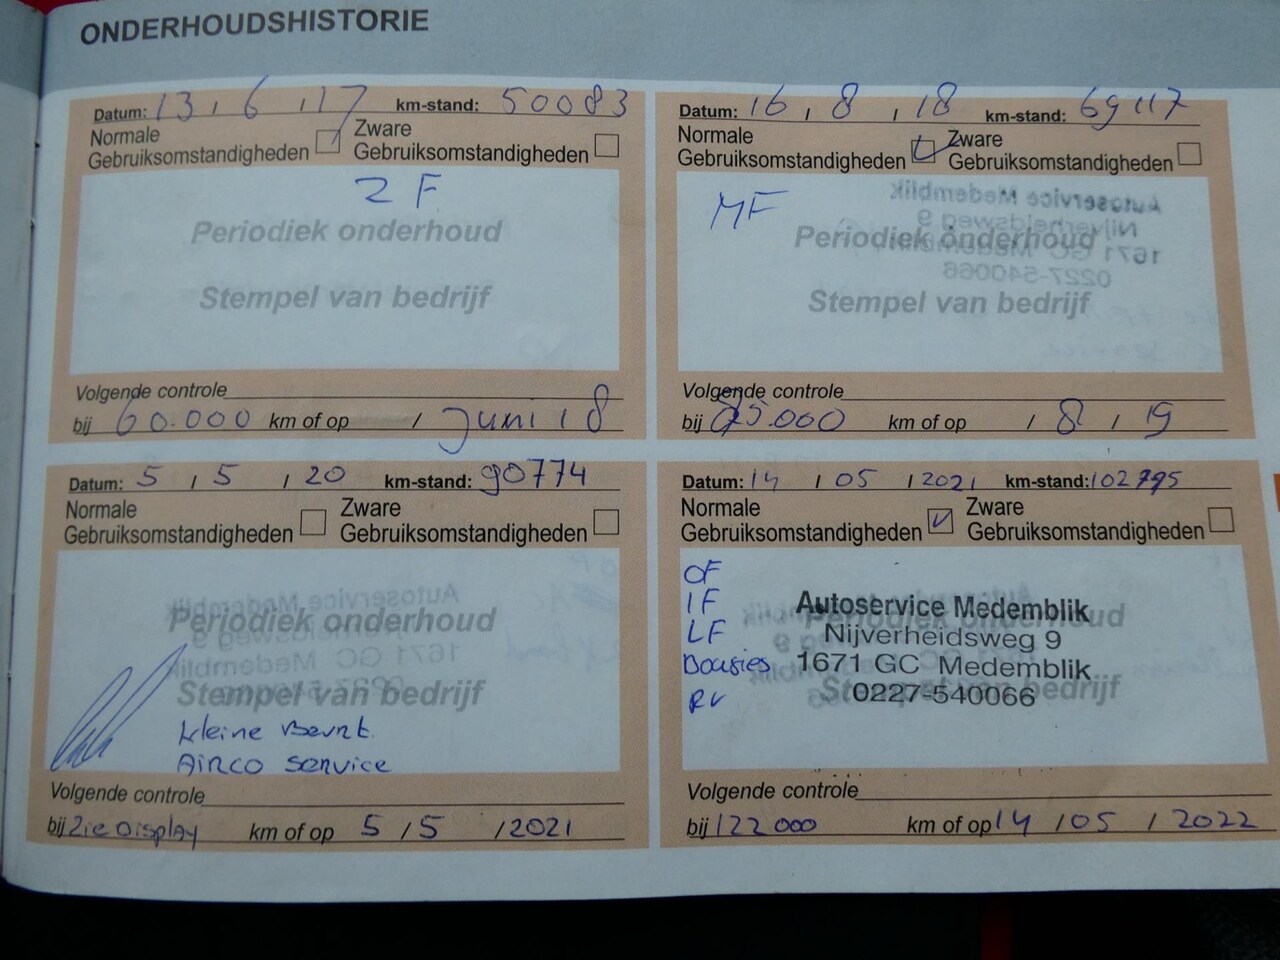 ONDERHOUDSHISTORIE
Datum: 13 , 6 , 17 km-stand: 50083
Normale
Gebruiksomstandigheden
Zware
Gebruiksomstandigheden
2 F
Periodiek onderhoud
Stempel van bedrijf
Volgende controle
bij 60.000 km of op / juni 18
Datum: 16 , 8 , 18 km-stand: 69117
Normale
Gebruiksomstandigheden
Zware
Gebruiksomstandigheden
MF
Periodiek onderhoud
Stempel van bedrijf
Volgende controle
bij 85.000 km of op / 8 / 19
Datum: 5 / 5 / 20 km-stand: 90774
Normale
Gebruiksomstandigheden
Zware
Gebruiksomstandigheden
Periodiek onderhoud
Stempel van bedrijf
kleine Beurt.
Airco service
Volgende controle
bij Zie Display km of op 5 / 5 / 2021
Datum: 14 / 05 / 2021 km-stand: 102795
Normale
Gebruiksomstandigheden
Zware
Gebruiksomstandigheden
OF
IF
LF
Bougies
RV
Autoservice Medemblik
Periodiek onderhoud
Nijverheidsweg 9
1671 GC Medemblik
Stempel van bedrijf
0227-540066
Volgende controle
bij 122000 km of op 14 / 05 / 2022